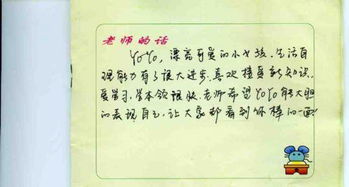 老师的话
YoYo，漂亮可爱的小女孩，生活自
理能力有了很大进步，喜欢接受新知识，
爱学习，学本领很快，老师希望YoYo能大胆
的表现自己，让大家都看到你棒的一面！